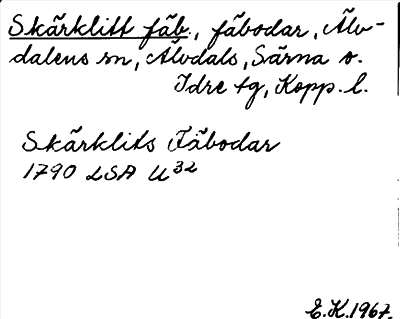 Skärklitt fäb., fäbodar, Älv-
dalens sn, Älvdals, Särna o.
Idre tg, Kopp. l.
Skärklits Fäbodar
1790 LSA U32
E.K.1967.